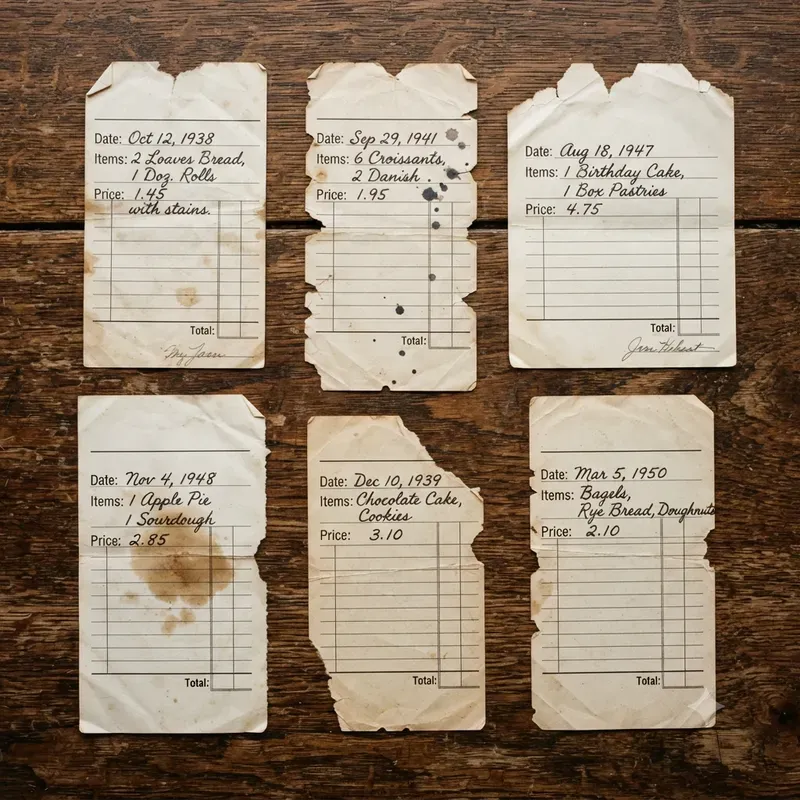 Date: Oct 12, 1938
Items: 2 Loaves Bread,
1 Doz. Rolls
Price: 1.45
with stains.
Total:
Date: Sep 29, 1941
Items: 6 Croissants,
2 Danish
Price: 1.95
Total:
Date: Aug 18, 1947
Items: 1 Birthday Cake,
1 Box Pastries
Price: 4.75
Total:
Date: Nov 4, 1948
Items: 1 Apple Pie
1 Sourdough
Price: 2.85
Total:
Date: Dec 10, 1939
Items: Chocolate Cake,
Cookies
Price: 3.10
Total:
Date: Mar 5, 1950
Items: Bagels,
Rye Bread, Doughnuts
Price: 2.10
Total: